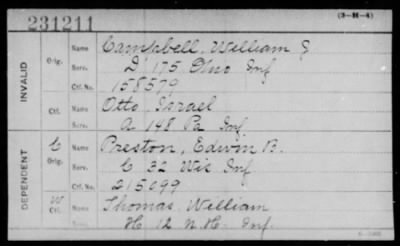 231211
(3-H-4)
INVALID
Orig.
Name Campbell, William J
Serv. D 175 Ohio Inf
Ctf. No. 158579
Ctf.
Name Otto Israel
Serv. A 148 Pa Inf.
DEPENDENT
C
Orig.
Name Preston, Edwin B.
Serv. C 32 Wis Inf
Ctf. No. 215099
W
Ctf.
Name Thomas, William
Serv. H 12 N.H. Inf.